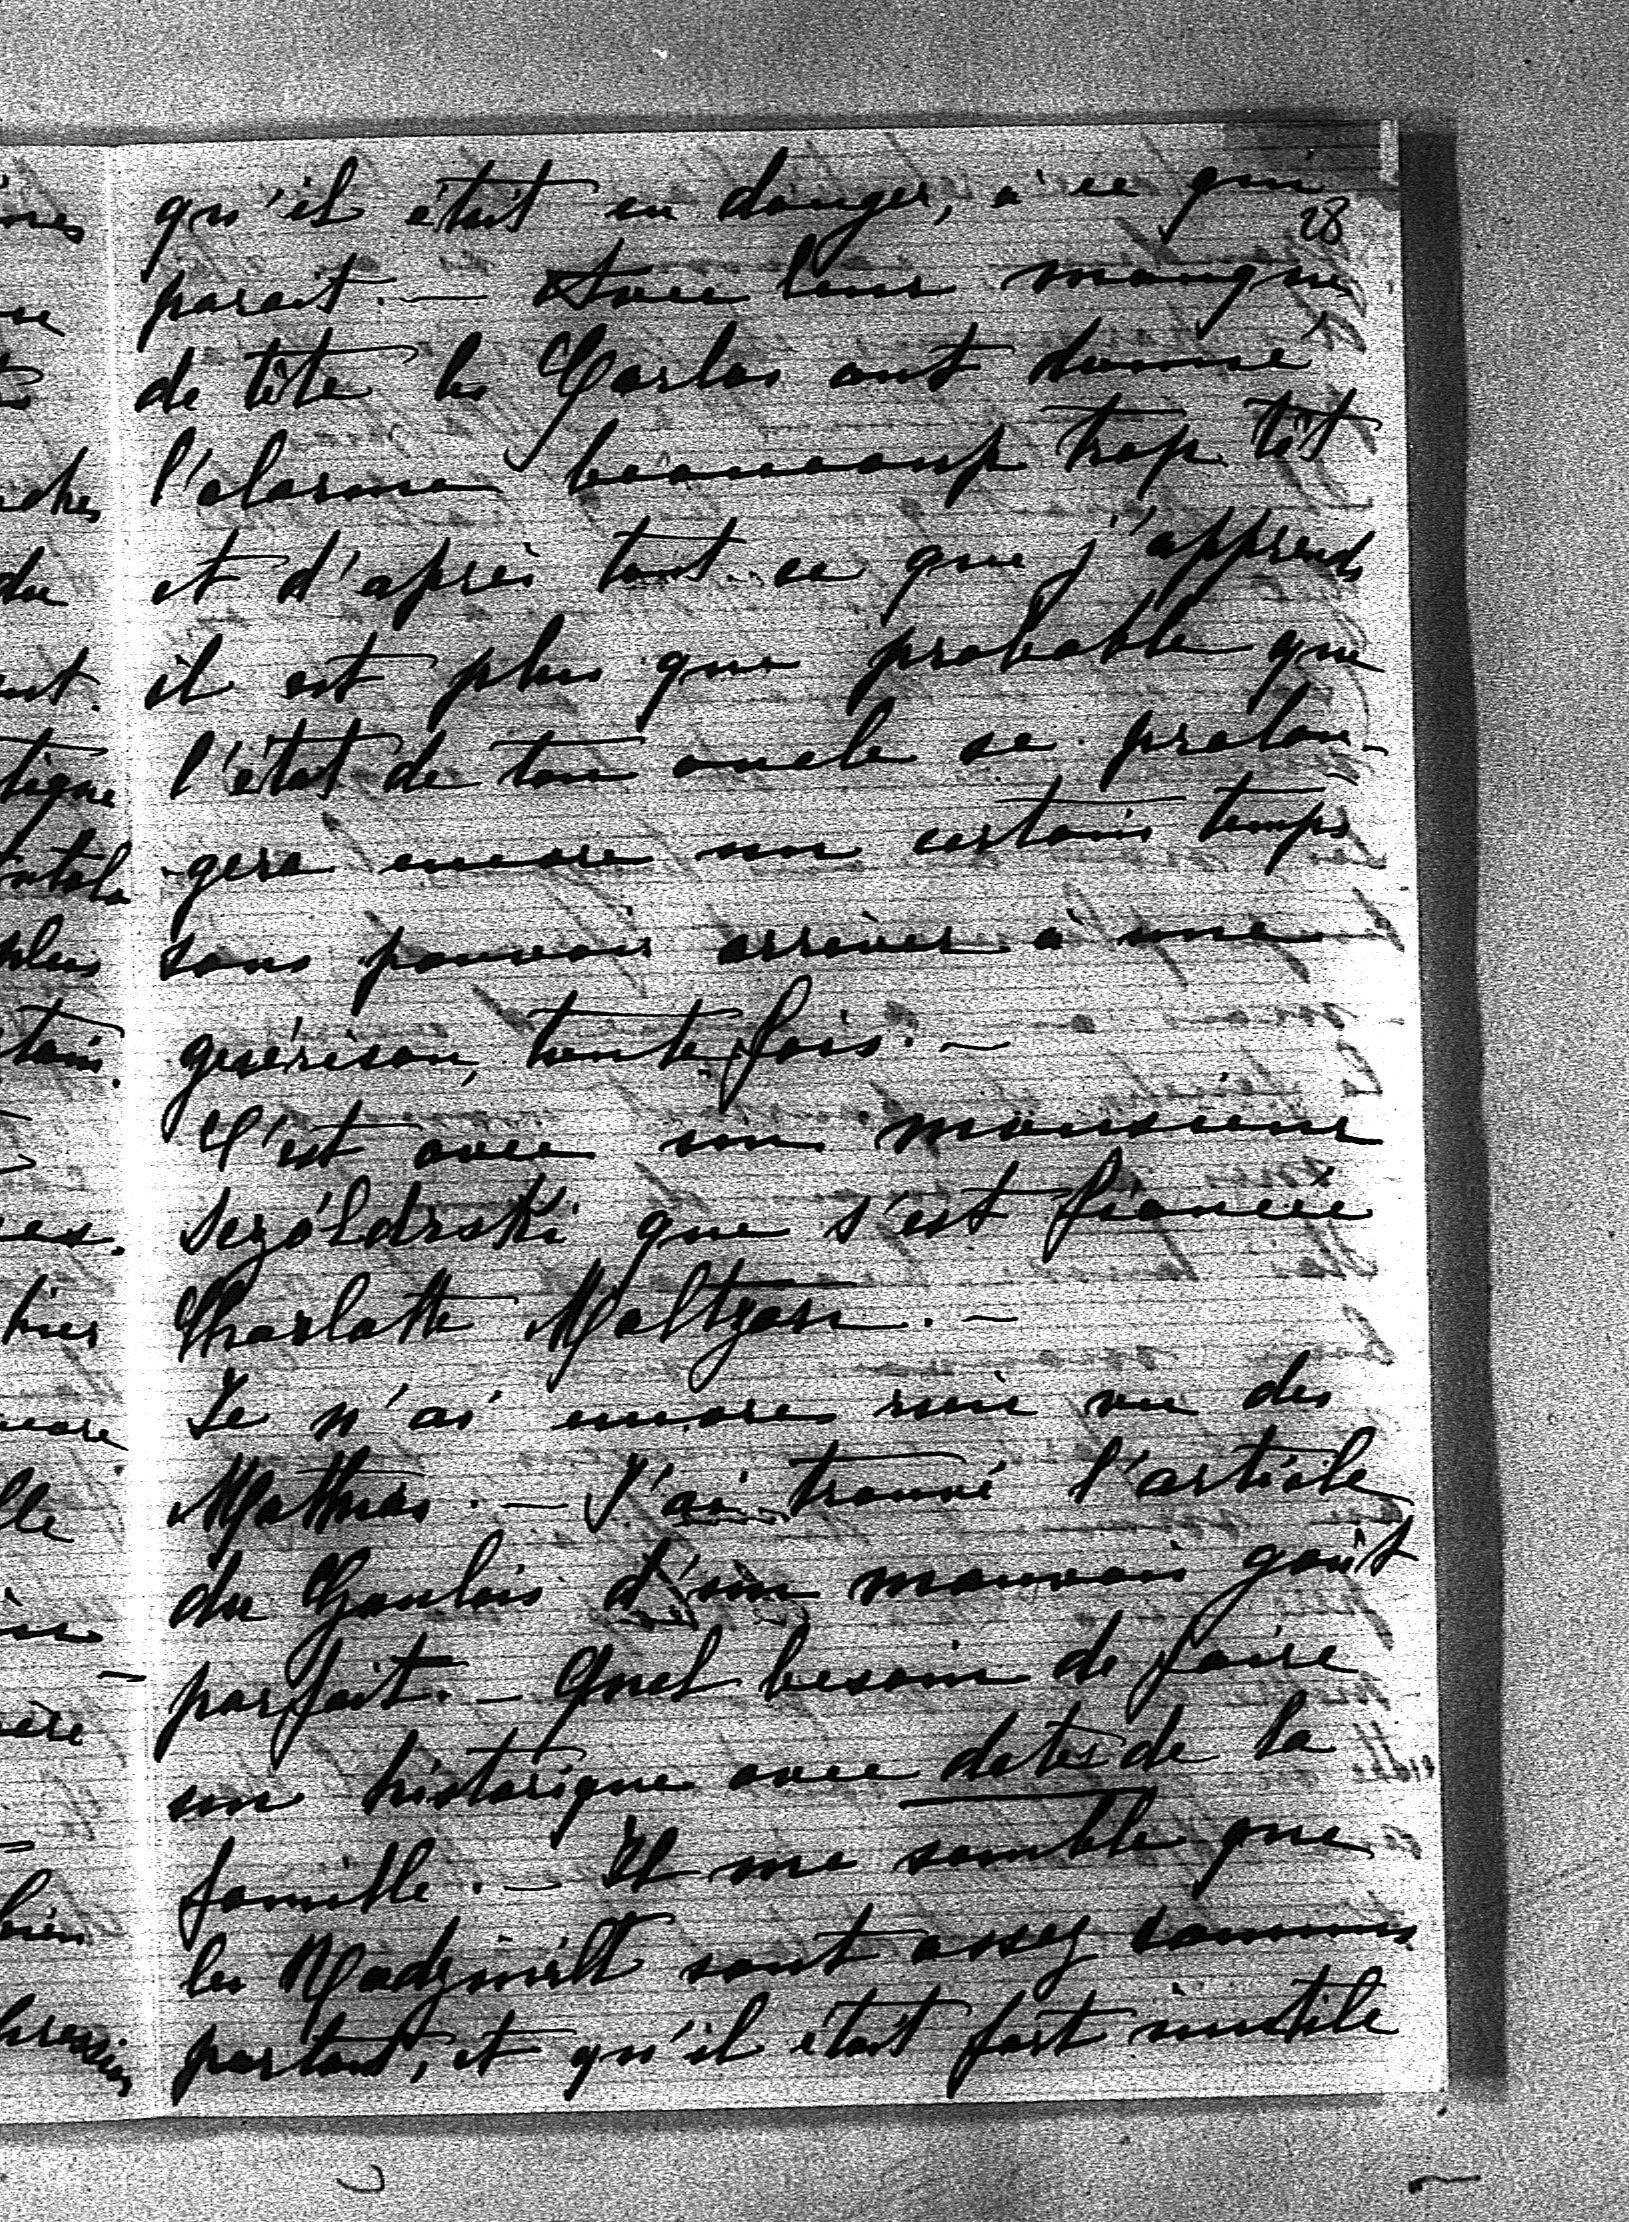 28
qu'il était en danger, à ce qui
parait. — Avec leur manque
de tête les Carlos ont donné
l'alarme beaucoup trop tôt
et d'après tout ce que j'apprends
il est plus que probable que
l'état de ton oncle se prolon-
-gera encore un certain temps
sans pouvoir arriver à une
guérison, toute fois. —
C'est avec un monsieur
Szóldrski que s'est fiancée
Charlotte Maltzan. —
Je n'ai encore rien vu des
Mathias. — J'ai trouvé l'article
du Gaulois d'un mauvais goût
parfait. — Quel besoin de faire
un historique avec dates de la
famille. — Il me semble que
les Radziwill sont assez connus
partout, et qu'il était fort inutile